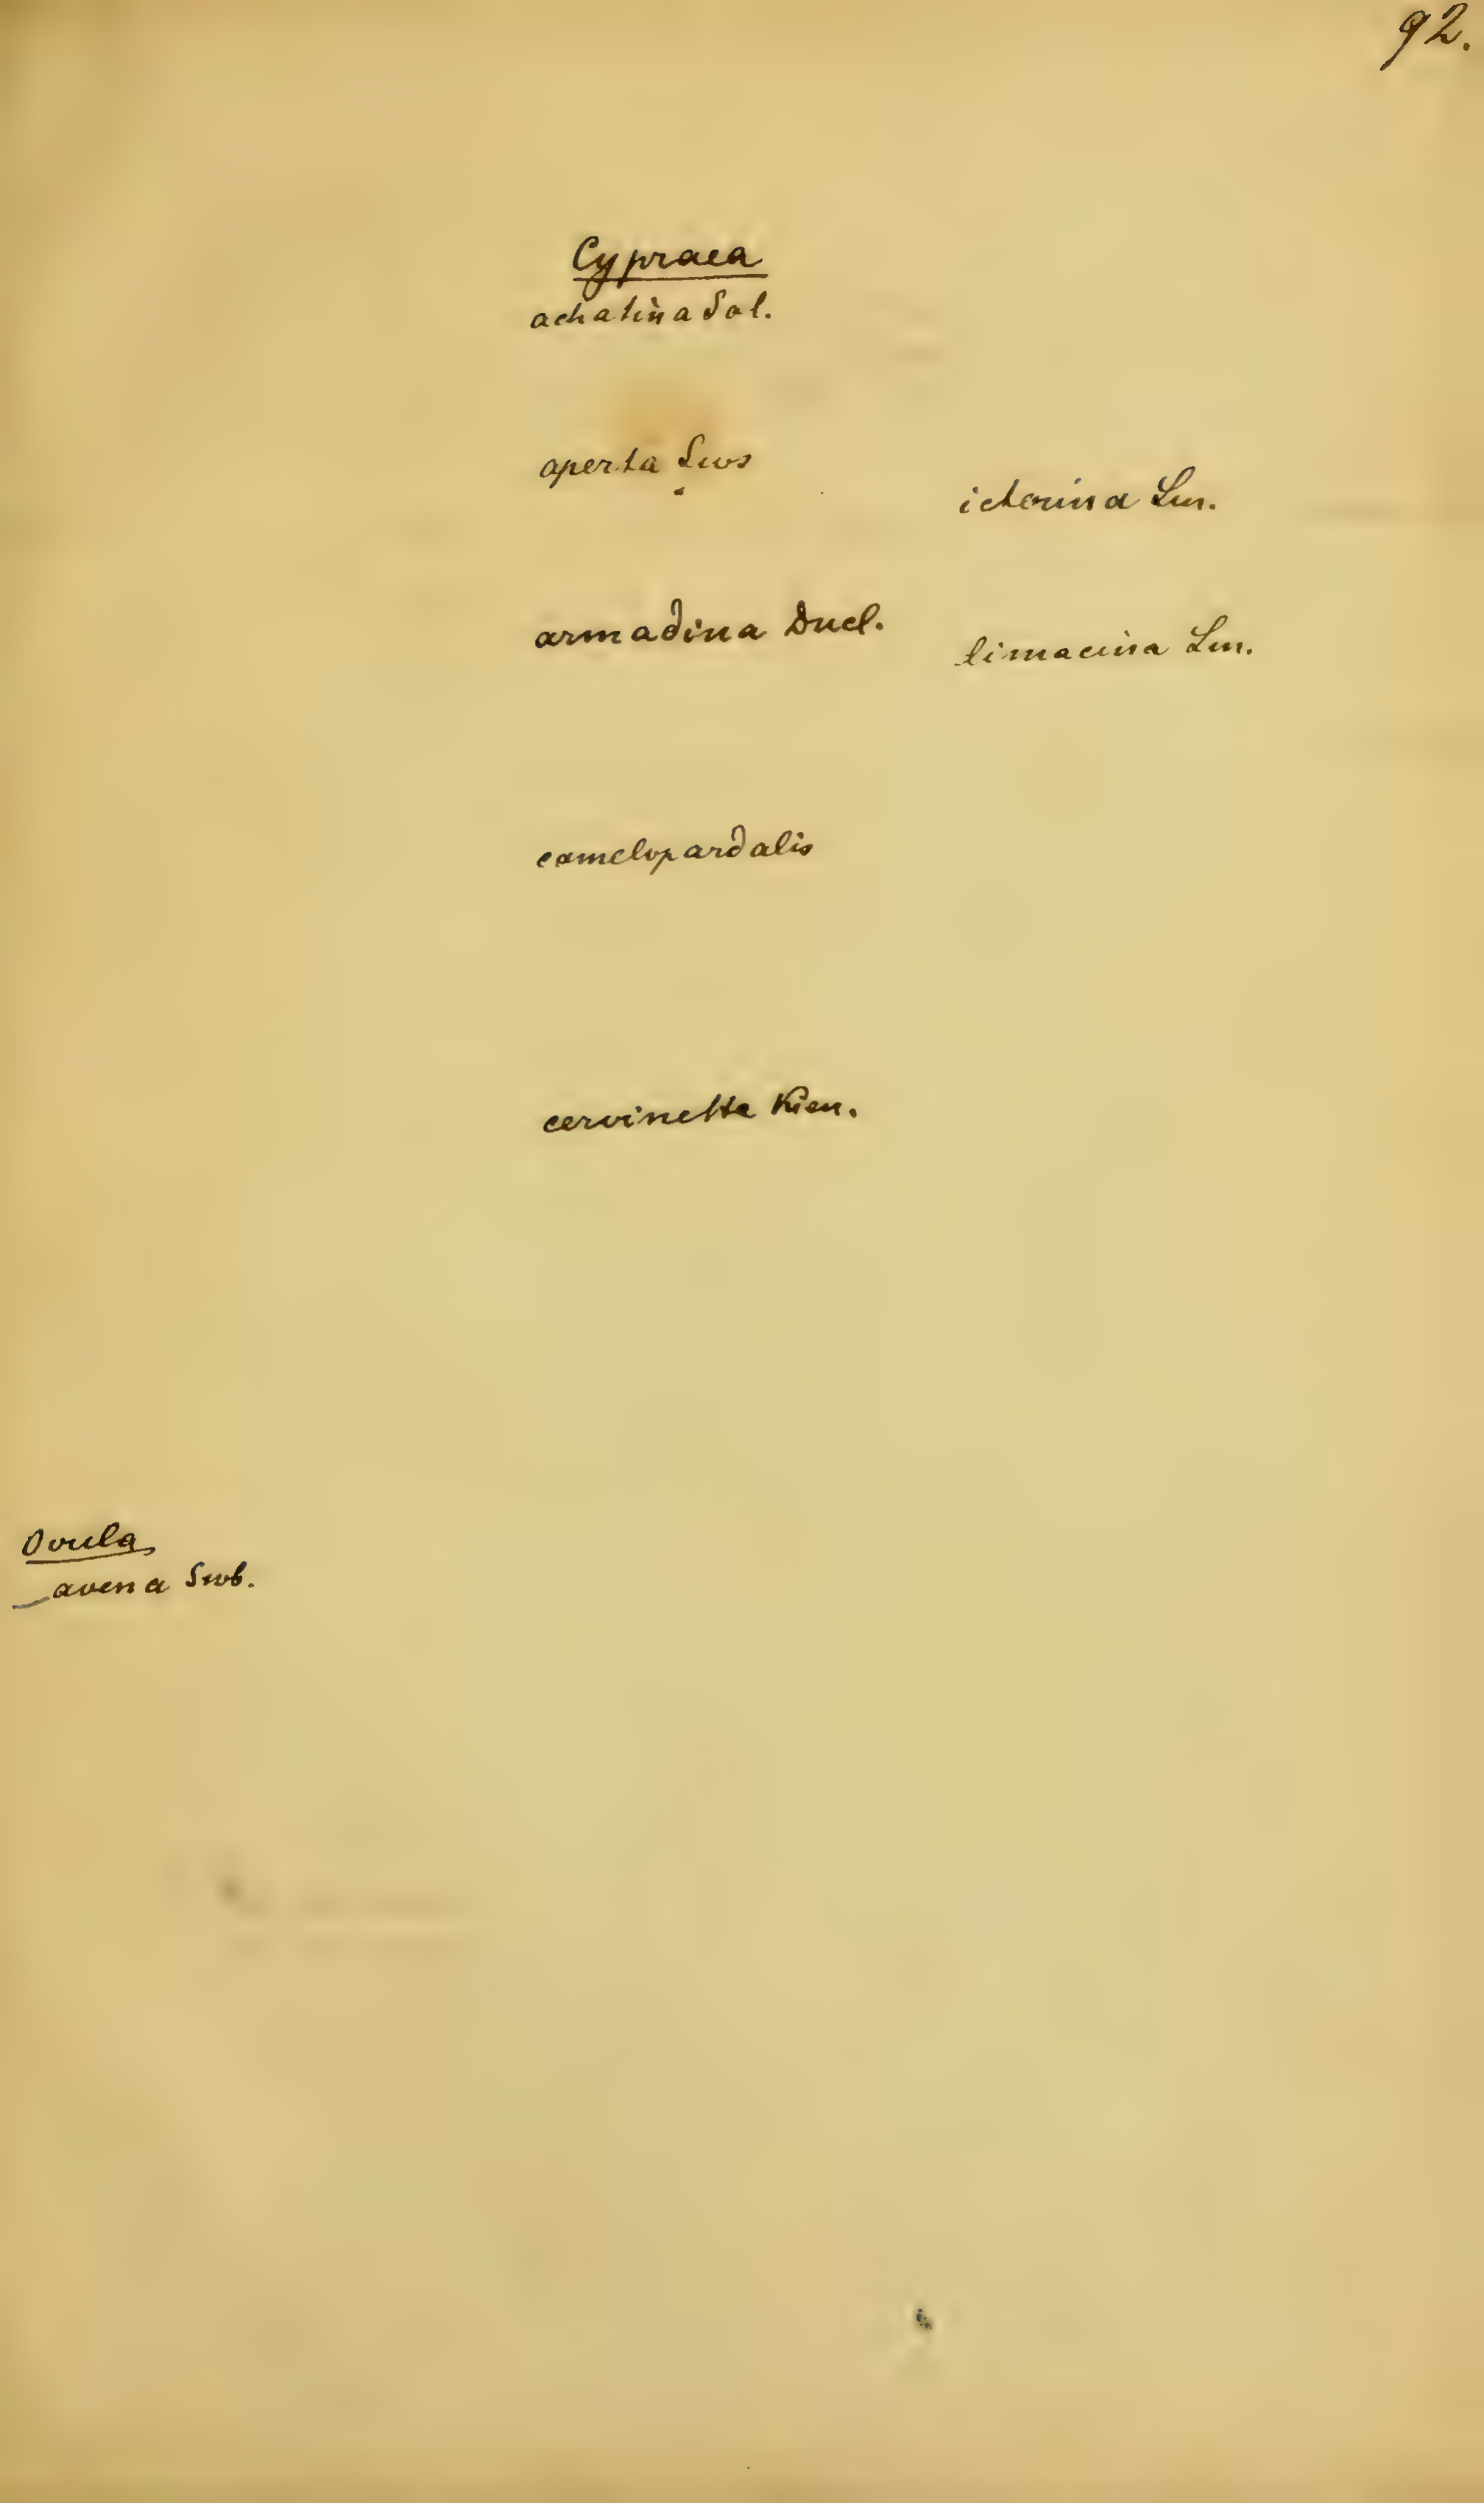 92.
Cypraea
achatina Sol.
aperta Sws
icterina Lm.
armadina Ducl.
limacina Lm.
camelopardalis
cervinetta Kien.
Ovula
avena Swb.